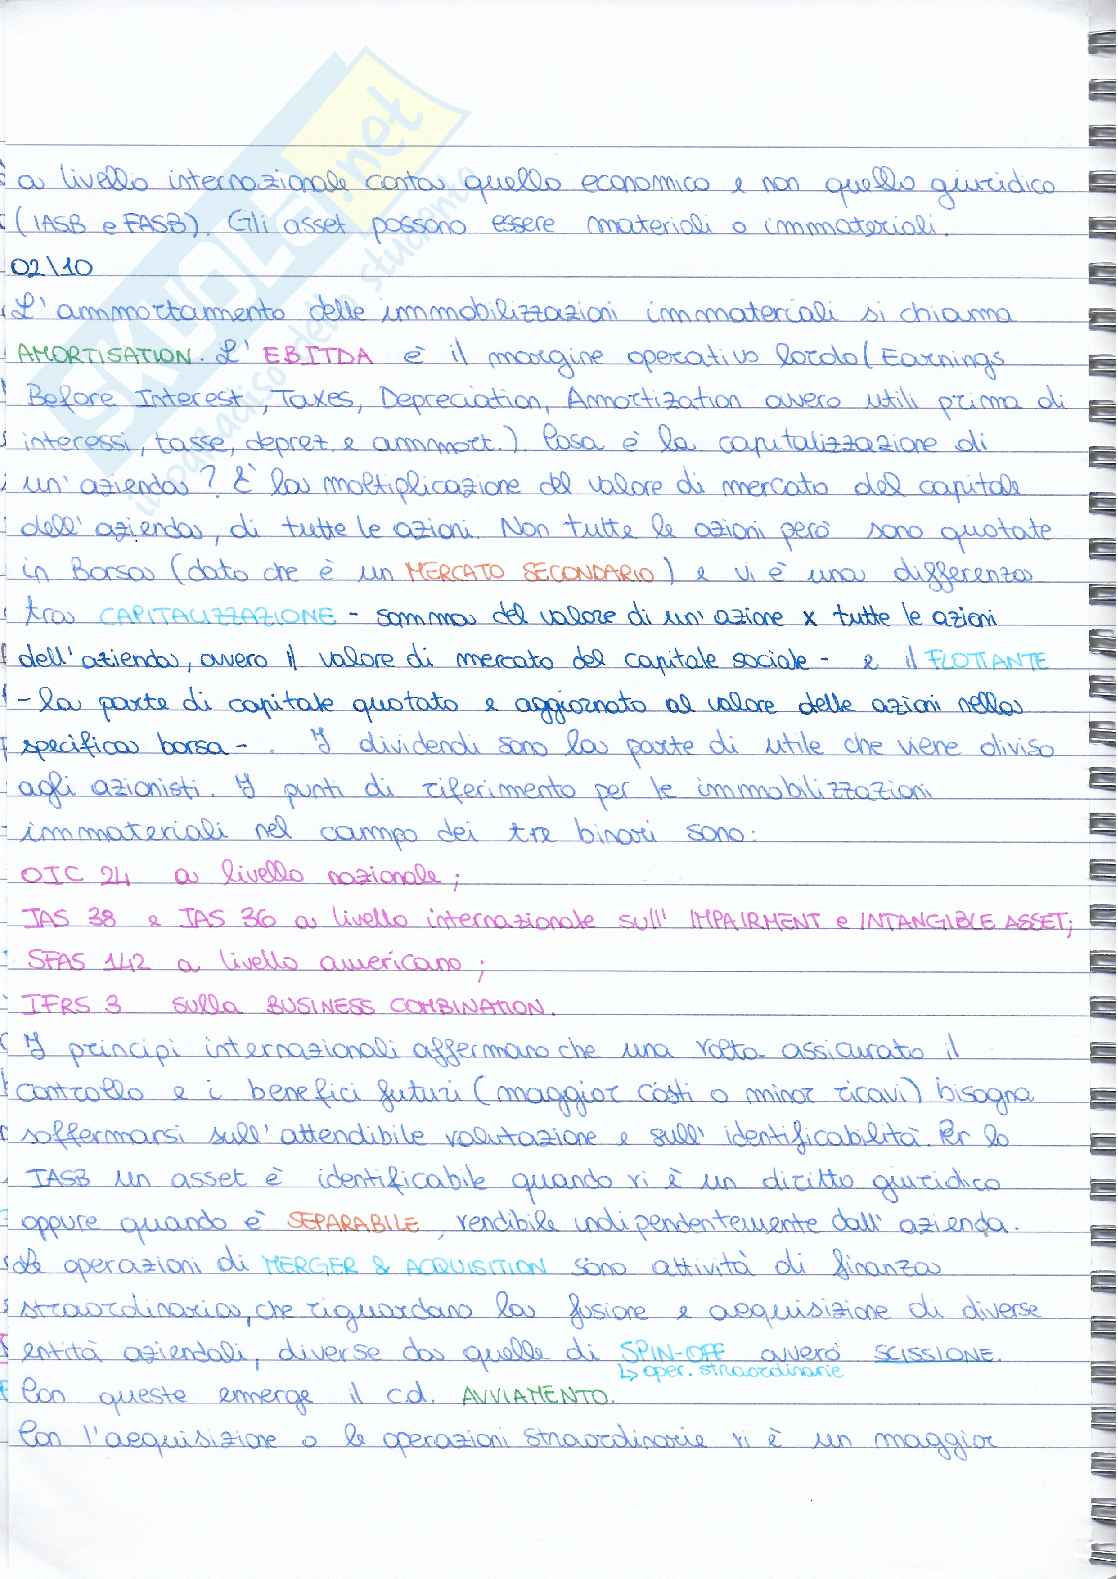 a livello internazionale conta quello economico e non quello giuridico
(IASB e FASB). Gli asset possono essere materiali o immateriali.
02\10
L'ammortamento delle immobilizzazioni immateriali si chiama
AMORTISATION. L'EBITDA è il margine operativo lordo (Earnings
Before Interest, Taxes, Depreciation, Amortization ovvero utili prima di
interessi, tasse, deprez. e ammort.) Cosa è la capitalizzazione di
un'azienda? È la moltiplicazione del valore di mercato del capitale
dell'azienda, di tutte le azioni. Non tutte le azioni però sono quotate
in Borsa (dato che è un MERCATO SECONDARIO) e vi è una differenza
tra CAPITALIZZAZIONE - somma del valore di un'azione x tutte le azioni
dell'azienda, ovvero il valore di mercato del capitale sociale - e il FLOTTANTE
- la parte di capitale quotato e aggiornato al valore delle azioni nella
specifica borsa - . I dividendi sono la parte di utile che viene diviso
agli azionisti. I punti di riferimento per le immobilizzazioni
immateriali nel campo dei tre binari sono:
OIC 24 a livello nazionale;
IAS 38 e IAS 36 a livello internazionale sull'IMPAIRMENT e INTANGIBLE ASSET;
SFAS 142 a livello americano;
IFRS 3 sulla BUSINESS COMBINATION.
I principi internazionali affermano che una volta assicurato il
controllo e i benefici futuri (maggior costi o minor ricavi) bisogna
soffermarsi sull'attendibile valutazione e sull'identificabilità. Per lo
IASB un asset è identificabile quando vi è un diritto giuridico
oppure quando è SEPARABILE, vendibile indipendentemente dall'azienda.
Le operazioni di MERGER & ACQUISITION sono attività di finanza
straordinaria, che riguardano la fusione e acquisizione di diverse
entità aziendali, diverse da quelle di SPIN-OFF ovvero SCISSIONE.
↳ oper. straordinarie
Con queste emerge il cd. AVVIAMENTO.
Con l'acquisizione o le operazioni straordinarie vi è un maggior
SKUOLA.net
il paradiso dello studente